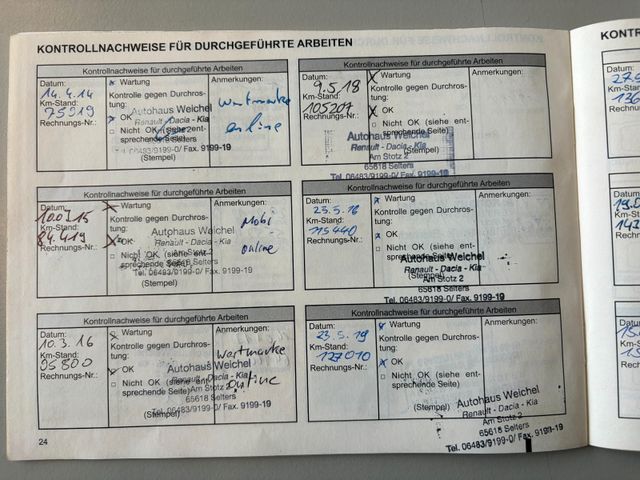 KONTROLLNACHWEISE FÜR DURCHGEFÜHRTE ARBEITEN
Kontrollnachweise für durchgeführte Arbeiten
Datum:
14.4.14
Km-Stand:
75919
Rechnungs-Nr.:
Wartung
Kontrolle gegen Durchros-
tung:
OK
Nicht OK (siehe ent-
sprechende Seite)
(Stempel)
Autohaus Weichel
Renault - Dacia - Kia
Tel. 06483/9199-0/ Fax. 9199-19
Anmerkungen:
online
Kontrollnachweise für durchgeführte Arbeiten
Datum:
9.5.18
Km-Stand:
105207
Rechnungs-Nr.:
X Wartung
Kontrolle gegen Durchros-
tung:
X OK
Nicht OK (siehe ent-
sprechende Seite)
(Stempel)
Autohaus Weichel
Renault - Dacia - Kia
Am Stotz 2
65618 Selters
Tel. 06483/9199-0/ Fax. 9199-19
Anmerkungen:
Kontrollnachweise für durchgeführte Arbeiten
Datum:
Km-Stand:
84.419
Rechnungs-Nr.:
X Wartung
Kontrolle gegen Durchros-
tung:
X OK
Nicht OK (siehe ent-
sprechende Seite)
Autohaus Weichel
Renault - Dacia - Kia
Am Stotz 2
65618 Selters
Tel. 06483/9199-0/ Fax. 9199-19
Anmerkungen:
Mobi
online
Kontrollnachweise für durchgeführte Arbeiten
Datum:
Km-Stand:
115440
Rechnungs-Nr.:
X Wartung
Kontrolle gegen Durchros-
tung:
X OK
Nicht OK (siehe ent-
sprechende Seite)
Autohaus Weichel
Renault - Dacia - Kia
Am Stotz 2
65618 Selters
Tel. 06483/9199-0/ Fax. 9199-19
Anmerkungen:
Kontrollnachweise für durchgeführte Arbeiten
Datum:
10.3.16
Km-Stand:
95800
Rechnungs-Nr.:
X Wartung
Kontrolle gegen Durchros-
tung:
OK
Nicht OK (siehe ent-
sprechende Seite)
(Stempel)
Autohaus Weichel
Renault - Dacia - Kia
Am Stotz 2
65618 Selters
Tel. 06483/9199-0/ Fax. 9199-19
Anmerkungen:
online
Kontrollnachweise für durchgeführte Arbeiten
Datum:
23.5.19
Km-Stand:
127010
Rechnungs-Nr.:
X Wartung
Kontrolle gegen Durchros-
tung:
X OK
Nicht OK (siehe ent-
sprechende Seite)
(Stempel)
Autohaus Weichel
Renault - Dacia - Kia
Am Stotz 2
65618 Selters
Tel. 06483/9199-0/ Fax. 9199-19
Anmerkungen:
24